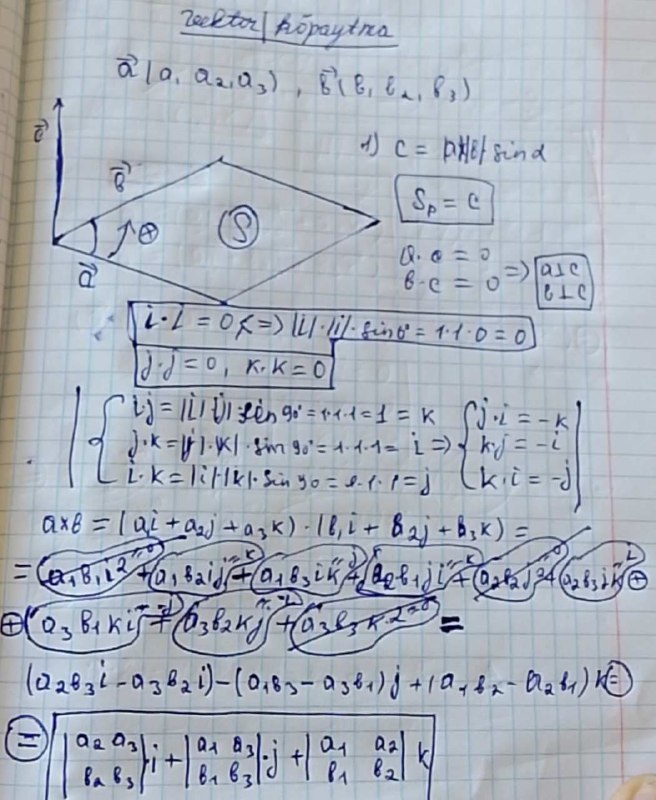 vektor| kõpaytma
a⃗ (a, a₂, a₃), b⃗ (b, b₂, b₃)
c⃗
b⃗
a⃗
⊕
S
1) c = |a||b| sinα
Sₚ = c
a·c = 0
b·c = 0 => a⊥c
b⊥c
i·i = 0 <=> |i|·|i|·sin0° = 1·1·0 = 0
j·j = 0, k·k = 0
i·j = |i| |j| sin 90° = 1·1·1 = 1 = k { j·i = -k
j·k = |j|·|k|·sin 90° = 1·1·1 = i => k·j = -i
i·k = |i|·|k|·sin 90 = 1·1·1 = j k·i = -j
a×b = (a₁i + a₂j + a₃k)·(b₁i + b₂j + b₃k) =
= a₁b₁i²⁼⁰ + a₁b₂ij⁼ᵏ + a₁b₃ik⁼ʲ + a₂b₁ji⁼⁻ᵏ + a₂b₂j²⁼⁰ + a₂b₃jk⁼ⁱ ⊕
⊕ a₃b₁ki⁼⁻ʲ + a₃b₂kj⁼⁻ⁱ + a₃b₃k²⁼⁰ =
(a₂b₃i - a₃b₂i) - (a₁b₃ - a₃b₁)j + (a₁b₂ - a₂b₁)k =
= |a₂ a₃| i + |a₁ a₃| ·j + |a₁ a₂| k
|b₂ b₃| |b₁ b₃| |b₁ b₂|